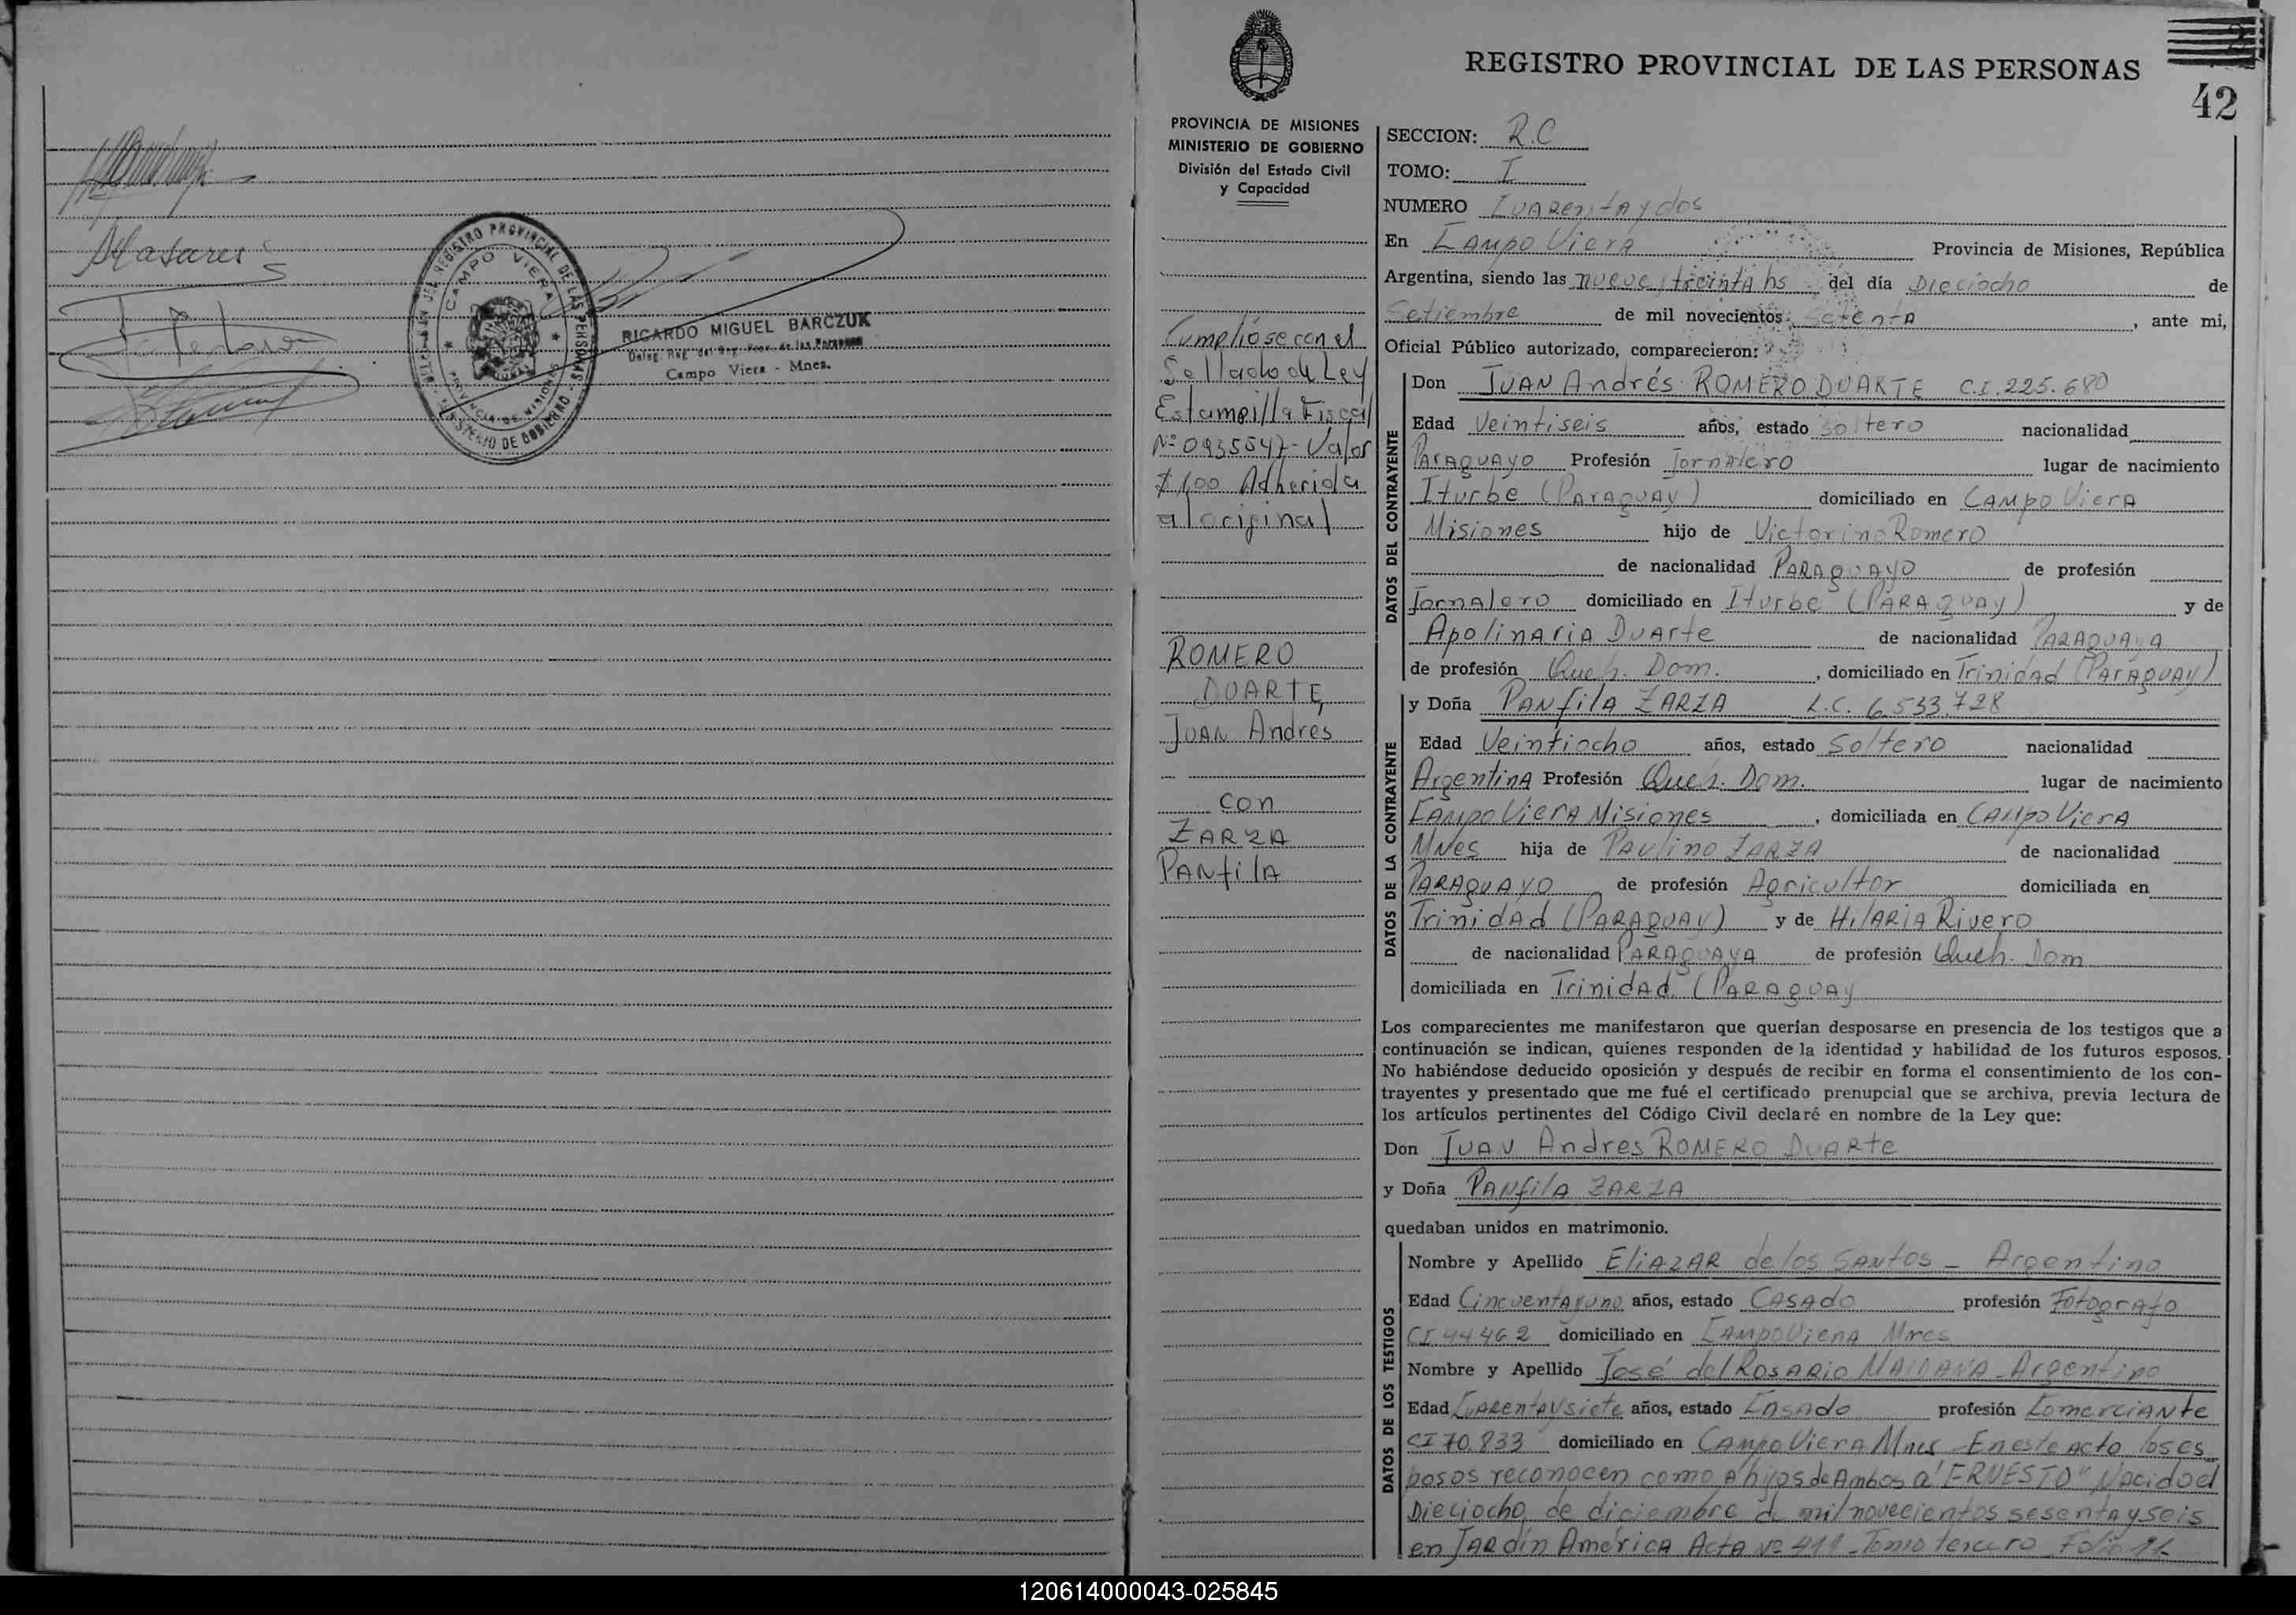 REGISTRO PROVINCIAL DE LAS PERSONAS
CAMPO VIERA
RICARDO MIGUEL BARCZUK
Campo Viera - Mnes.
REGISTRO PROVINCIAL DE LAS PERSONAS
42
PROVINCIA DE MISIONES
MINISTERIO DE GOBIERNO
División del Estado Civil
y Capacidad
Cumplióse con el
Sellado de Ley
Estampilla Fiscal
Nº 0935547 - Valor
$ 1,00 Adherida
al original
ROMERO
DUARTE,
JUAN Andrés
con
ZARZA
PANfilA
SECCION: R.C
TOMO: I
NUMERO CUARentAydos
En CAMpo VierA Provincia de Misiones, República
Argentina, siendo las nueve, treintA hs del día Dieciocho de
Setiembre de mil novecientos SetentA, ante mi,
Oficial Público autorizado, comparecieron:
DATOS DEL CONTRAYENTE
Don JUAN Andrés ROMERO DUARTE C.I. 225.680
Edad Veintiseis años, estado soltero nacionalidad
PArAguAyo Profesión JornAlero lugar de nacimiento
Iturbe (PArAguAy) domiciliado en CAMpo VierA
Misiones hijo de Victorino Romero
de nacionalidad PARAguAyo de profesión
JornAlero domiciliado en Iturbe (PARAguAy) y de
ApolinAriA DuArte de nacionalidad PARAguAyA
de profesión Queh. Dom., domiciliado en TrinidAd (PArAguAy)
DATOS DE LA CONTRAYENTE
y Doña PANfilA ZARZA L.C. 6.533.728
Edad Veintiocho años, estado Soltero nacionalidad
ArgentinA Profesión Queh. Dom. lugar de nacimiento
CAMpo VierA Misiones, domiciliada en CAMpo VierA
MNes hija de PAulino ZARZA de nacionalidad
PARAguAyo de profesión Agricultor domiciliada en
TrinidAd (PARAguAy) y de HilARiA Rivero
de nacionalidad PARAguAyA de profesión Queh. Dom
domiciliada en TrinidAd (PARAguAy
Los comparecientes me manifestaron que querían desposarse en presencia de los testigos que a
continuación se indican, quienes responden de la identidad y habilidad de los futuros esposos.
No habiéndose deducido oposición y después de recibir en forma el consentimiento de los con-
trayentes y presentado que me fué el certificado prenupcial que se archiva, previa lectura de
los artículos pertinentes del Código Civil declaré en nombre de la Ley que:
Don JUAN Andres ROMERO DuARte
y Doña PANfilA ZARZA
quedaban unidos en matrimonio.
DATOS DE LOS TESTIGOS
Nombre y Apellido EliAZAR de los SANtos - Argentino
Edad CincuentAyuno años, estado CASAdo profesión FotogrAfo
CI 44462 domiciliado en CAMpo VierA Mnes
Nombre y Apellido José del ROSARio MAIDANA - Argentino
Edad CuARentAysiete años, estado CASAdo profesión ComerciANte
CI 70.833 domiciliado en CAMpo VierA Mnes - En este Acto los es
posos reconocen como A hijos de Ambos a "ERNESTO" Nacido el
Dieciocho de diciembre de mil novecientos sesentA y seis
en JARdín AméricA ActA Nº 411 - Tomo tercero Folio 11
120614000043-025845